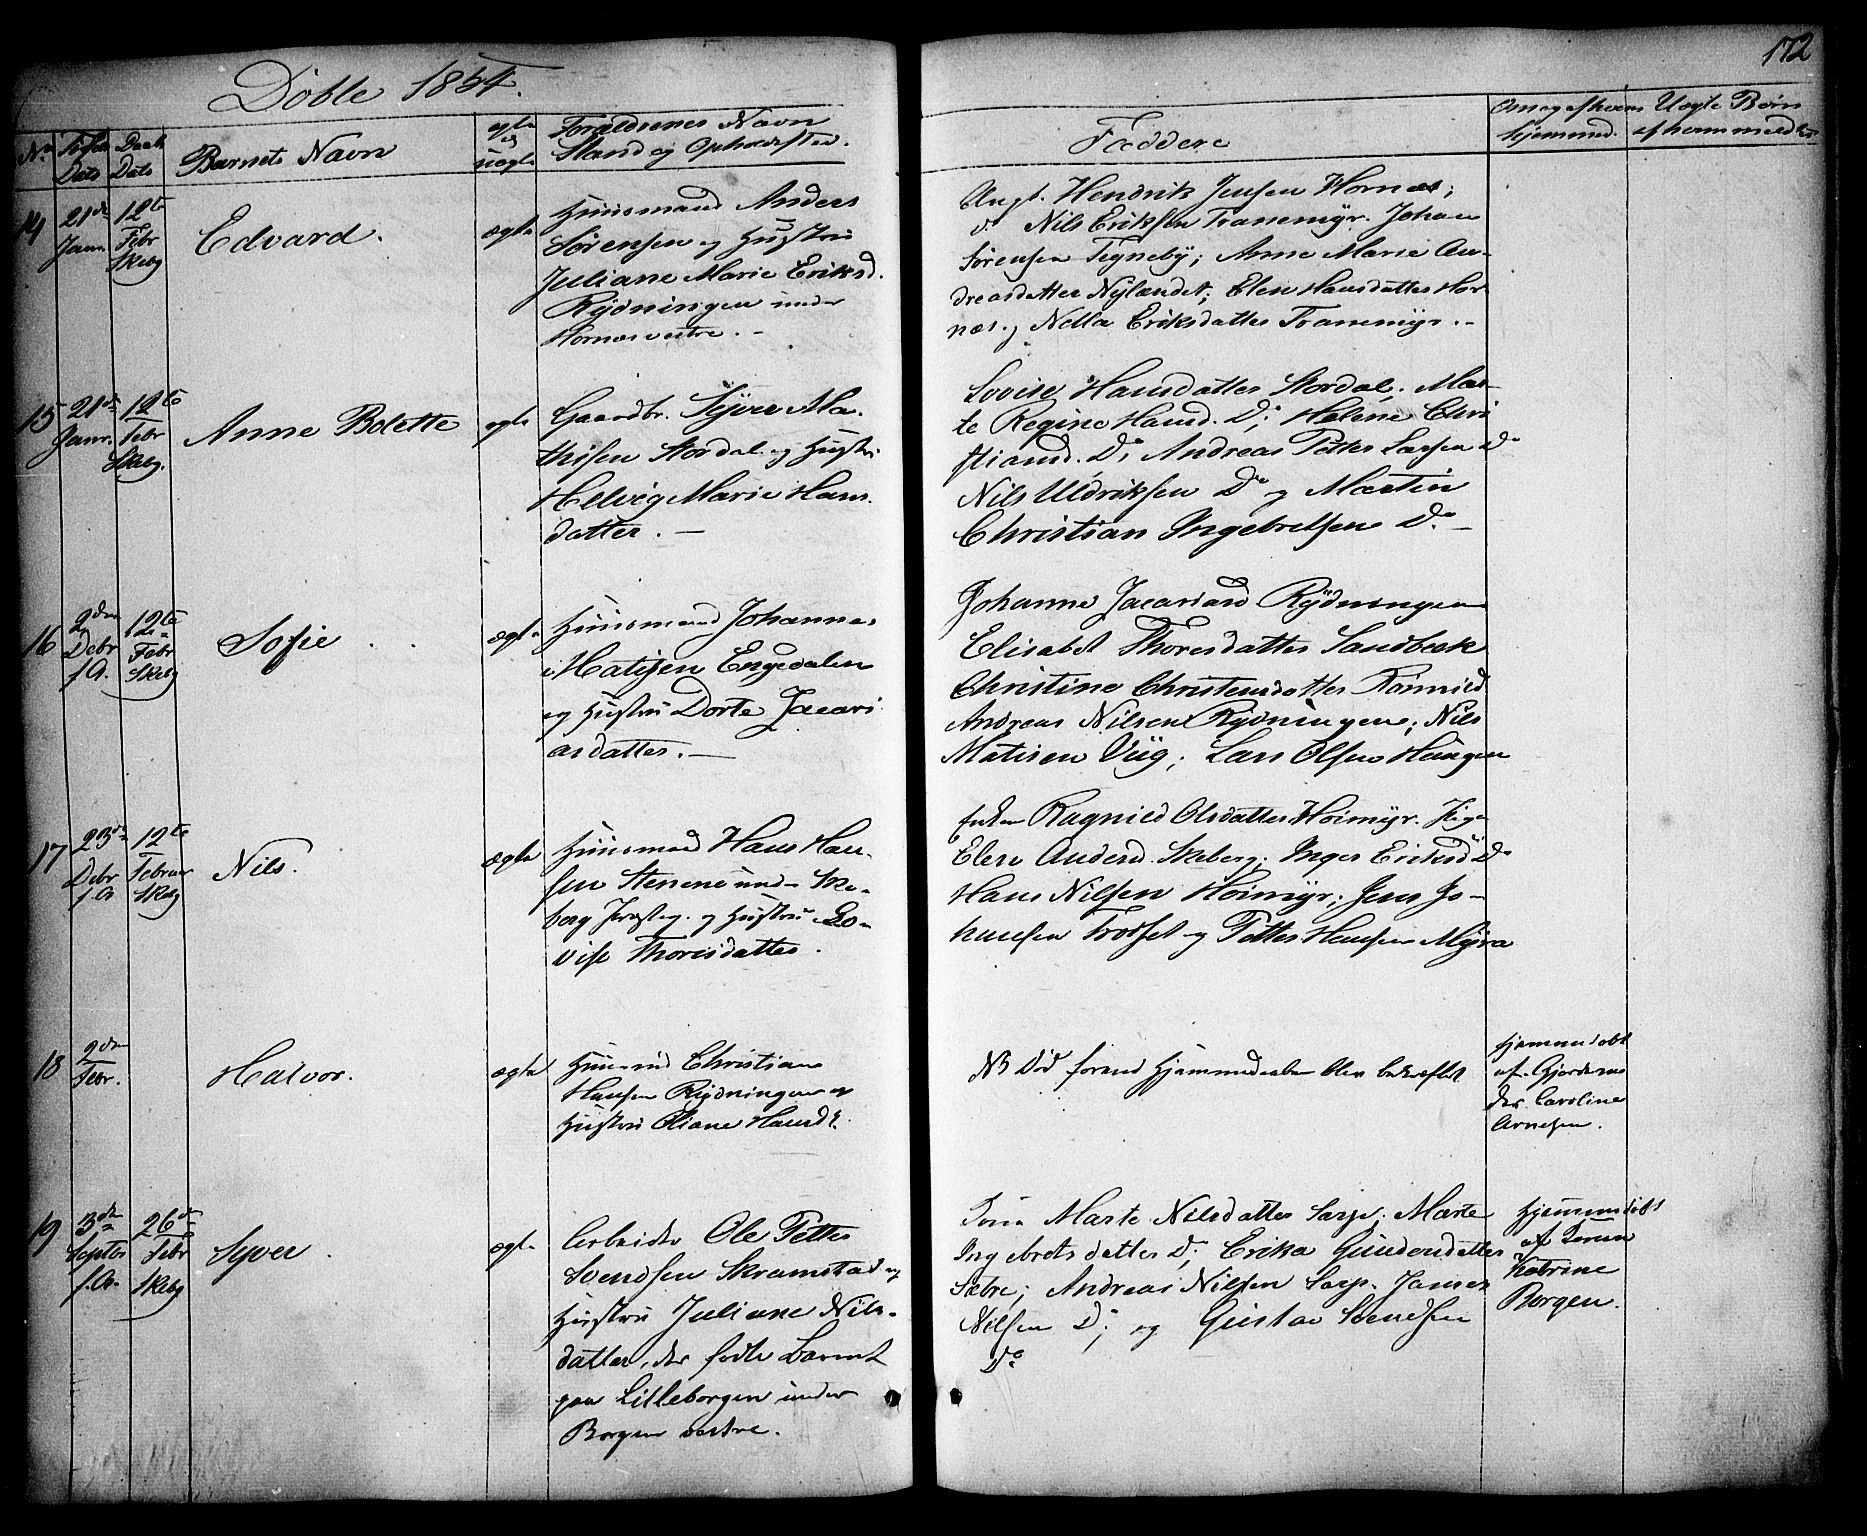 Döbte 1854.
172
No
Føds. Dato
Daab Dato
Barnets Navn
ægte og uægte
Forældrenes Navn
Stand og Opholdsted.
Faddere
Om og af hvem hjemmed.
Uægte Børn af hvem meldt
14
21de Janr.
12te Febr Skbg
Edvard.
ægte
Huusmand Anders
Sørensen og Hustru
Juliane Marie Eriksd.
Rydningen under
Hornes vestre. -
Ungk. Hendrik Jensen Hornes;
do Nils Eriksen Tranemyr. Johan
Sørensen Tegneby; Anne Marie An-
dreasdatter Nylændet; Elen Hansdatter Hor-
næs og Nella Eriksdatter Tranemyr. -
15
21de Janr.
12te Febr Skbg.
Anne Bolette
ægte
Gaardbr. Syver Ma-
thisen Stordal og Hustru
Helvig Marie Hans
datter. -
Lovise Hansdatter Stordal. Mar-
te Regine Hansd. Do; Helene Chri
stiansd. Do; Andreas Petter Larsen Do
Nils Uldriksen Do og Martin
Christian Ingebretsen Do -
16
2den Debr f.A.
12te Febr Skbg
Sofie
ægte
Huusmand Johannes
Matisen Engedalen
og Hustru Dorte Jacari
asdatter. -
Johanne Jacariasd Rydningen
Elisabet Thoresdatter Sandbæk
Christine Christensdatter Rømnild
Andreas Nilsen Rydningen; Nils
Matisen Viig; Lars Olsen Haugen
17
23de Debr f.A
12te Februar Skbg
Nils.
ægte
Huusmand Hans Han-
sen Stenene und. Ske-
berg Præsteg. og Hustru Lo-
vise Thoresdatter.
Enken Ragnild Olsdatter Høimyr. Pige
Elen Andersd. Skeberg; Inger Eriksd Do
Hans Nilsen Høimyr; Jens Jo-
hansen Trøsset og Petter Hansen Myra
18
2den Febr.
Halvor.
ægte
Huusmd Christian
Hansen Rydningen og
Hustru Oliane Hansdt.
NB Død forend Hjemmedaaben blev bekræftet
hjemmedøbt
af Gjordemo
der Caroline
Arnesen.
19
3de Septbr f.A.
26de Febr Skbg
Syver
ægte
Arbeider Ole Petter
Svendsen Skramstad og
Hustru Juliane Nils-
datter, der fødte Barnet
paa Lilleborgen under
Borgen vestre.
Marte Nilsdatter Sarp; Marte
Ingebretsdatter Do; Erika Gundersdatter
Sæbre; Andreas Nilsen Sarp. Janes
Nilsen Do; og Gustav Svendsen
Do
Hjemmedøbt
af
Katrine
Borgen.